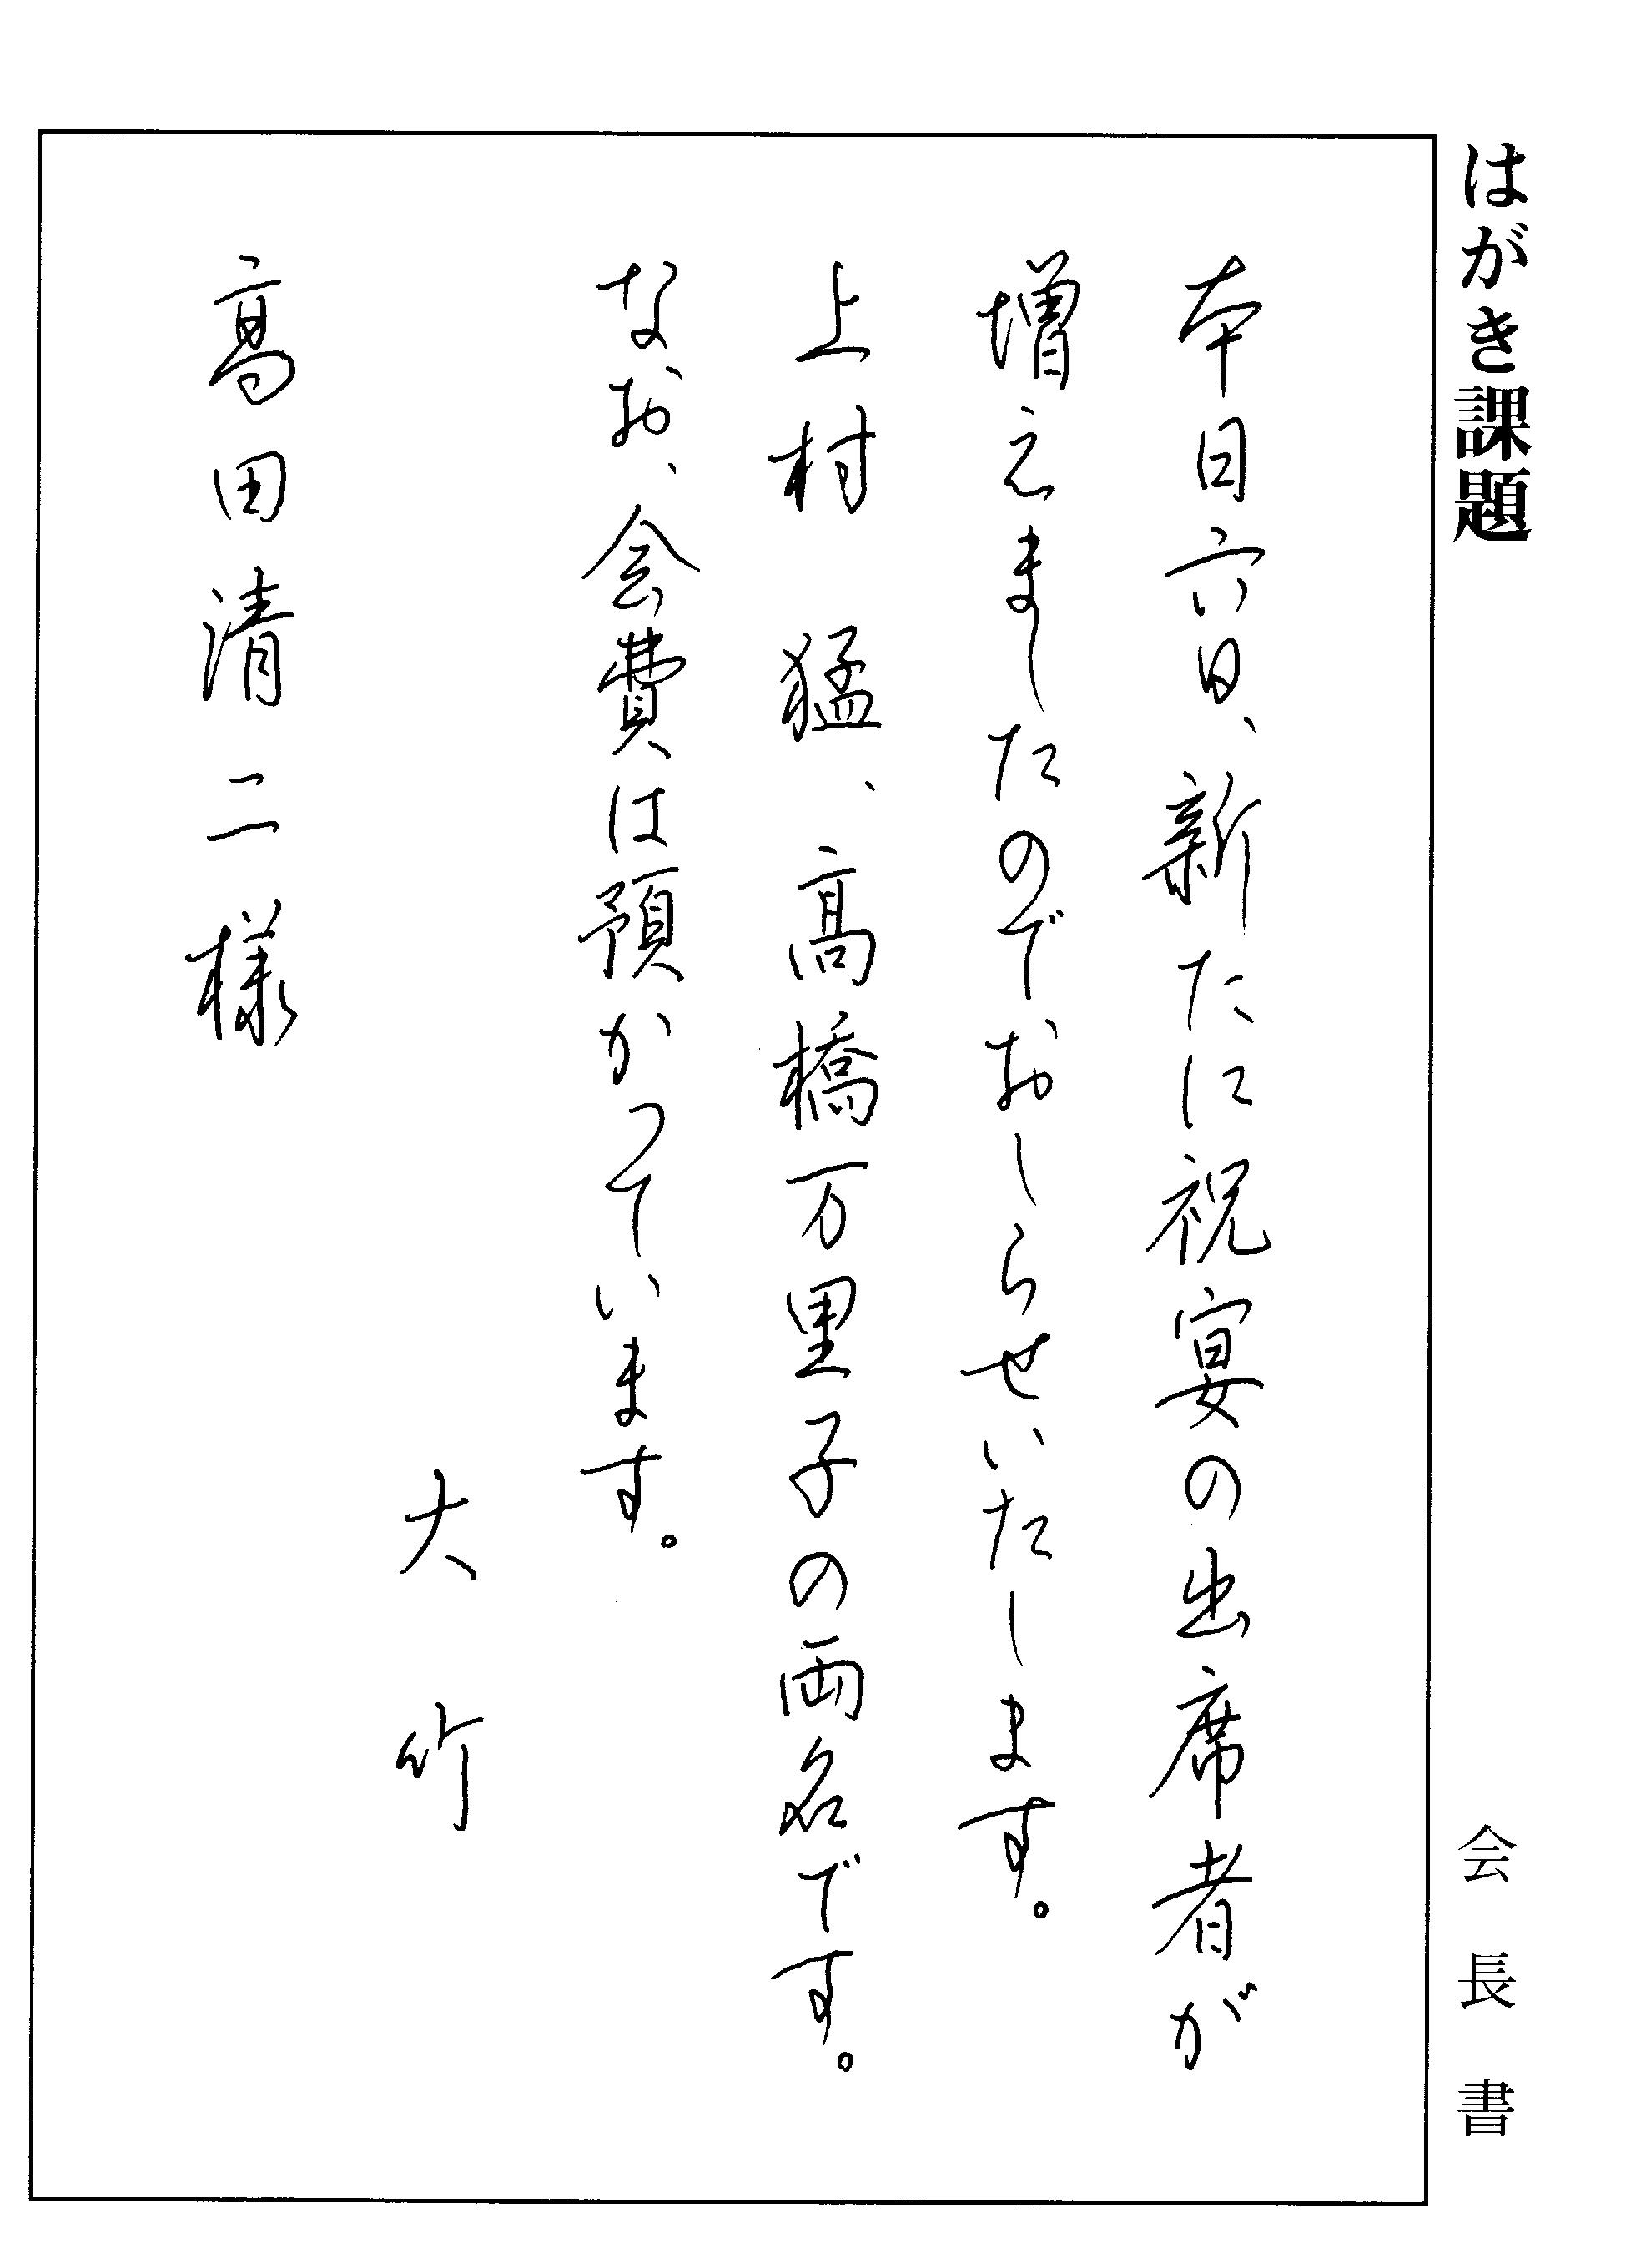 はがき課題
会長書
本日六日、新たに祝宴の出席者が
増えましたのでおしらせいたします。
上村　猛、高橋万里子の両名です。
なお、会費は預かっています。
大竹
高田清二様